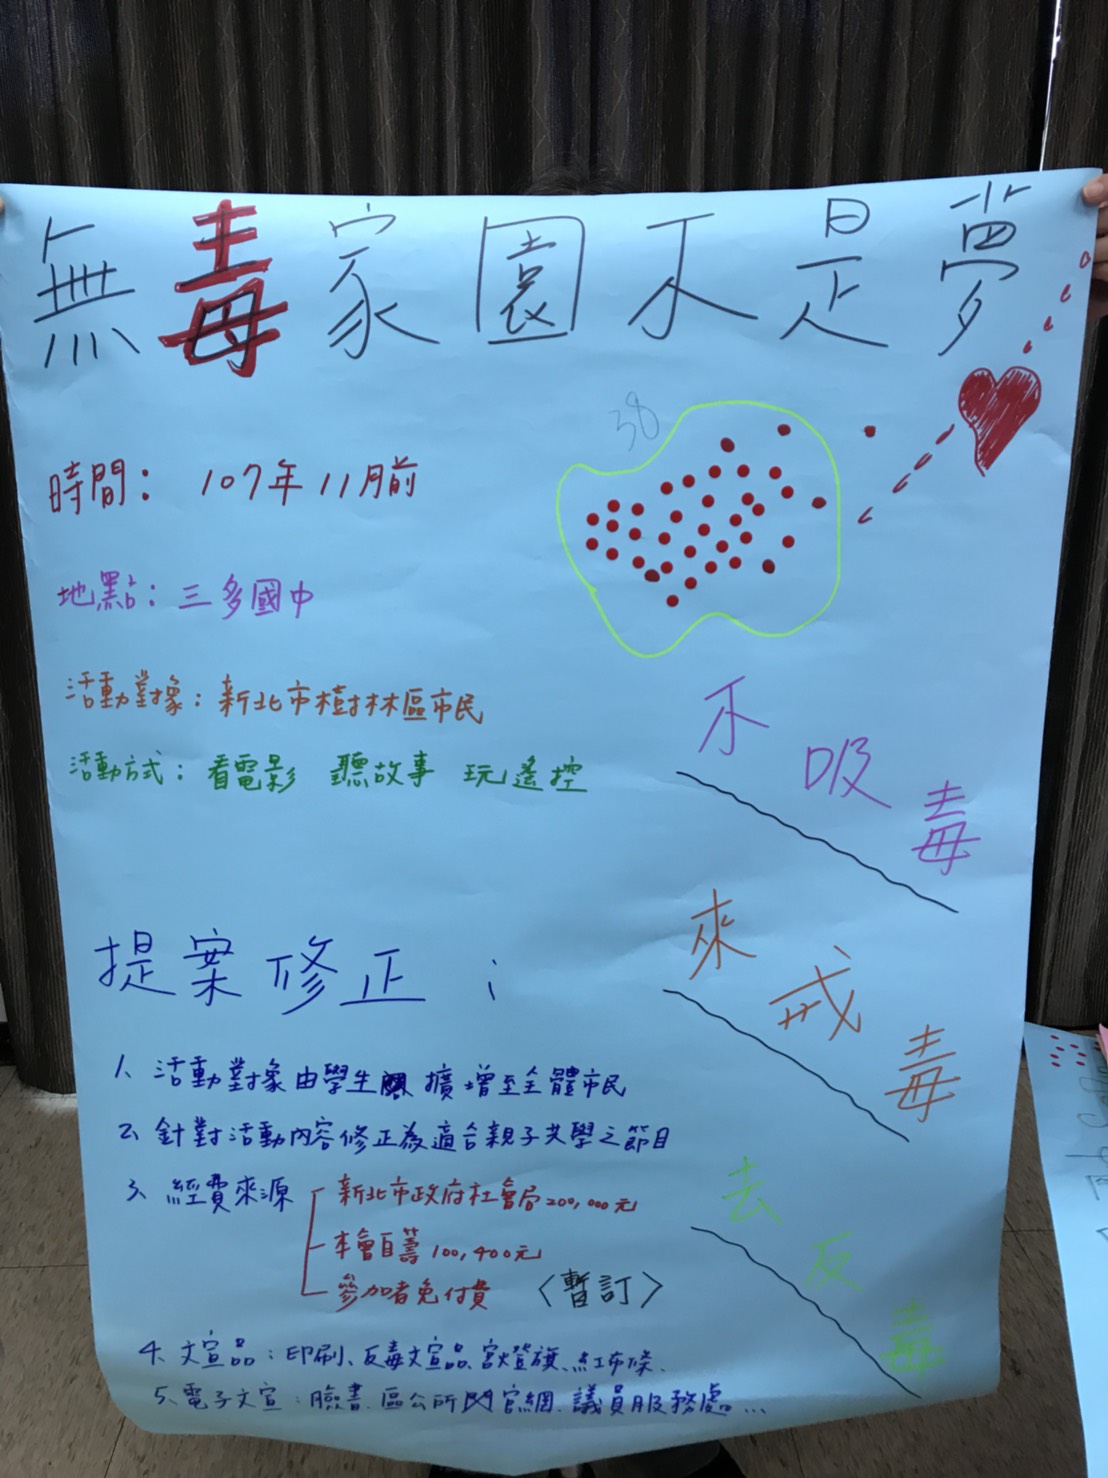 無毒家園不是夢
38
時間：107年11月前
地點：三多國中
活動對象：新北市樹林區市民
活動方式：看電影 聽故事 玩遙控
不吸毒
來戒毒
去反毒
提案修正：
1、活動對象由學生擴增至全體市民
2、針對活動內容修正為適合親子共學之節目
3、經費來源
新北市政府社會局200,000元
本會自籌100,400元
參加者免付費 〈暫訂〉
4、文宣品：印刷、反毒文宣品、宮燈旗、紅布條、
5、電子文宣：臉書、區公所官網、議員服務處…